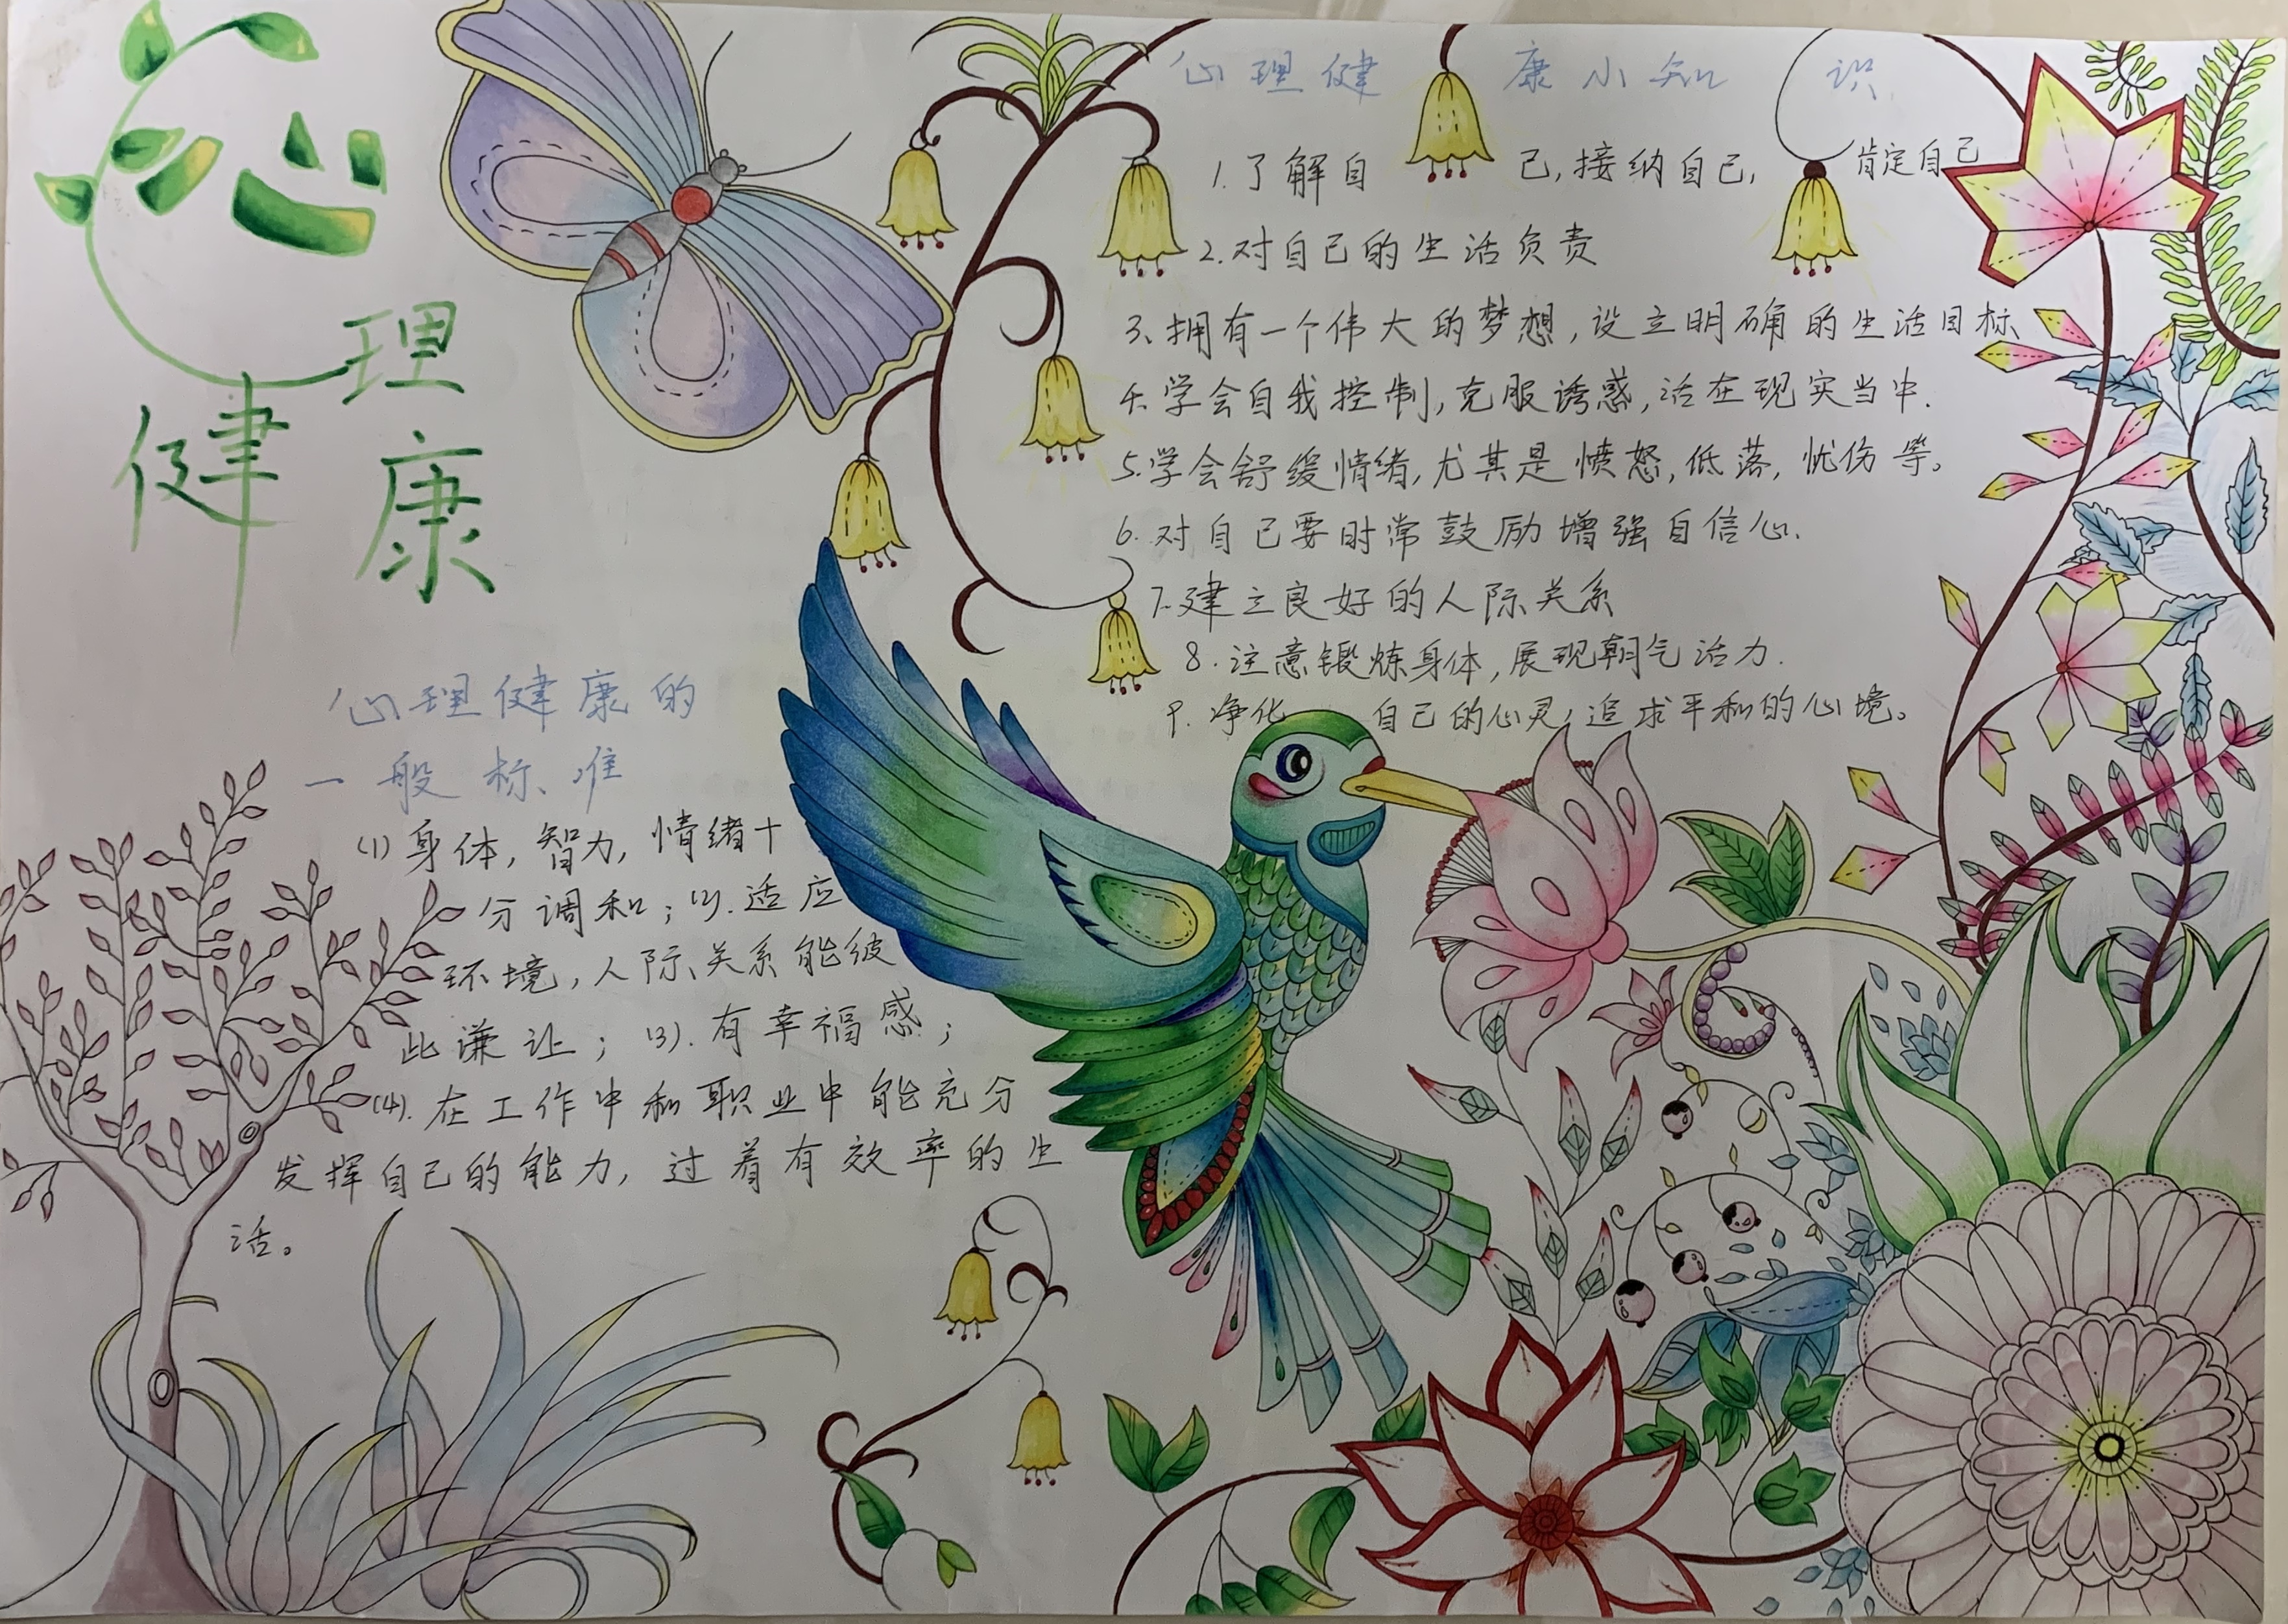 心理
健康
心理健康小知识
1.了解自己,接纳自己,肯定自己
2.对自己的生活负责
3、拥有一个伟大的梦想,设立明确的生活目标
4.学会自我控制,克服诱惑,活在现实当中.
5.学会舒缓情绪,尤其是愤怒,低落,忧伤等。
6.对自己要时常鼓励增强自信心.
7.建立良好的人际关系
8.注意锻炼身体,展现朝气活力.
9.净化自己的心灵,追求平和的心境。
心理健康的
一般标准
(1)身体,智力,情绪十
分调和;(2).适应
环境,人际关系能彼
此谦让;(3).有幸福感;
(4).在工作中和职业中能充分
发挥自己的能力,过着有效率的生
活。